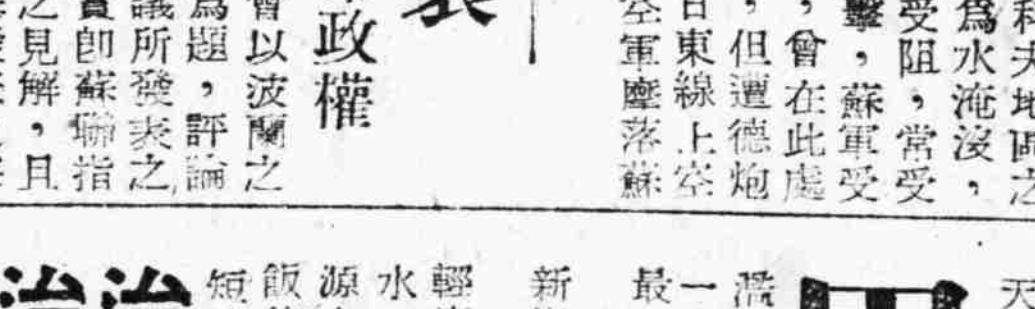 夫地區之
為水淹沒，
受阻，常受
擊，蘇軍受
，會在此處
，但遭德炮
日東線上空
空軍落蘇
政權
會以波蘭之
為題，評論
議所發表之
即蘇聯指
之見解，且
天
濫
一
最
新
輕
水
源
飯
短
治
治